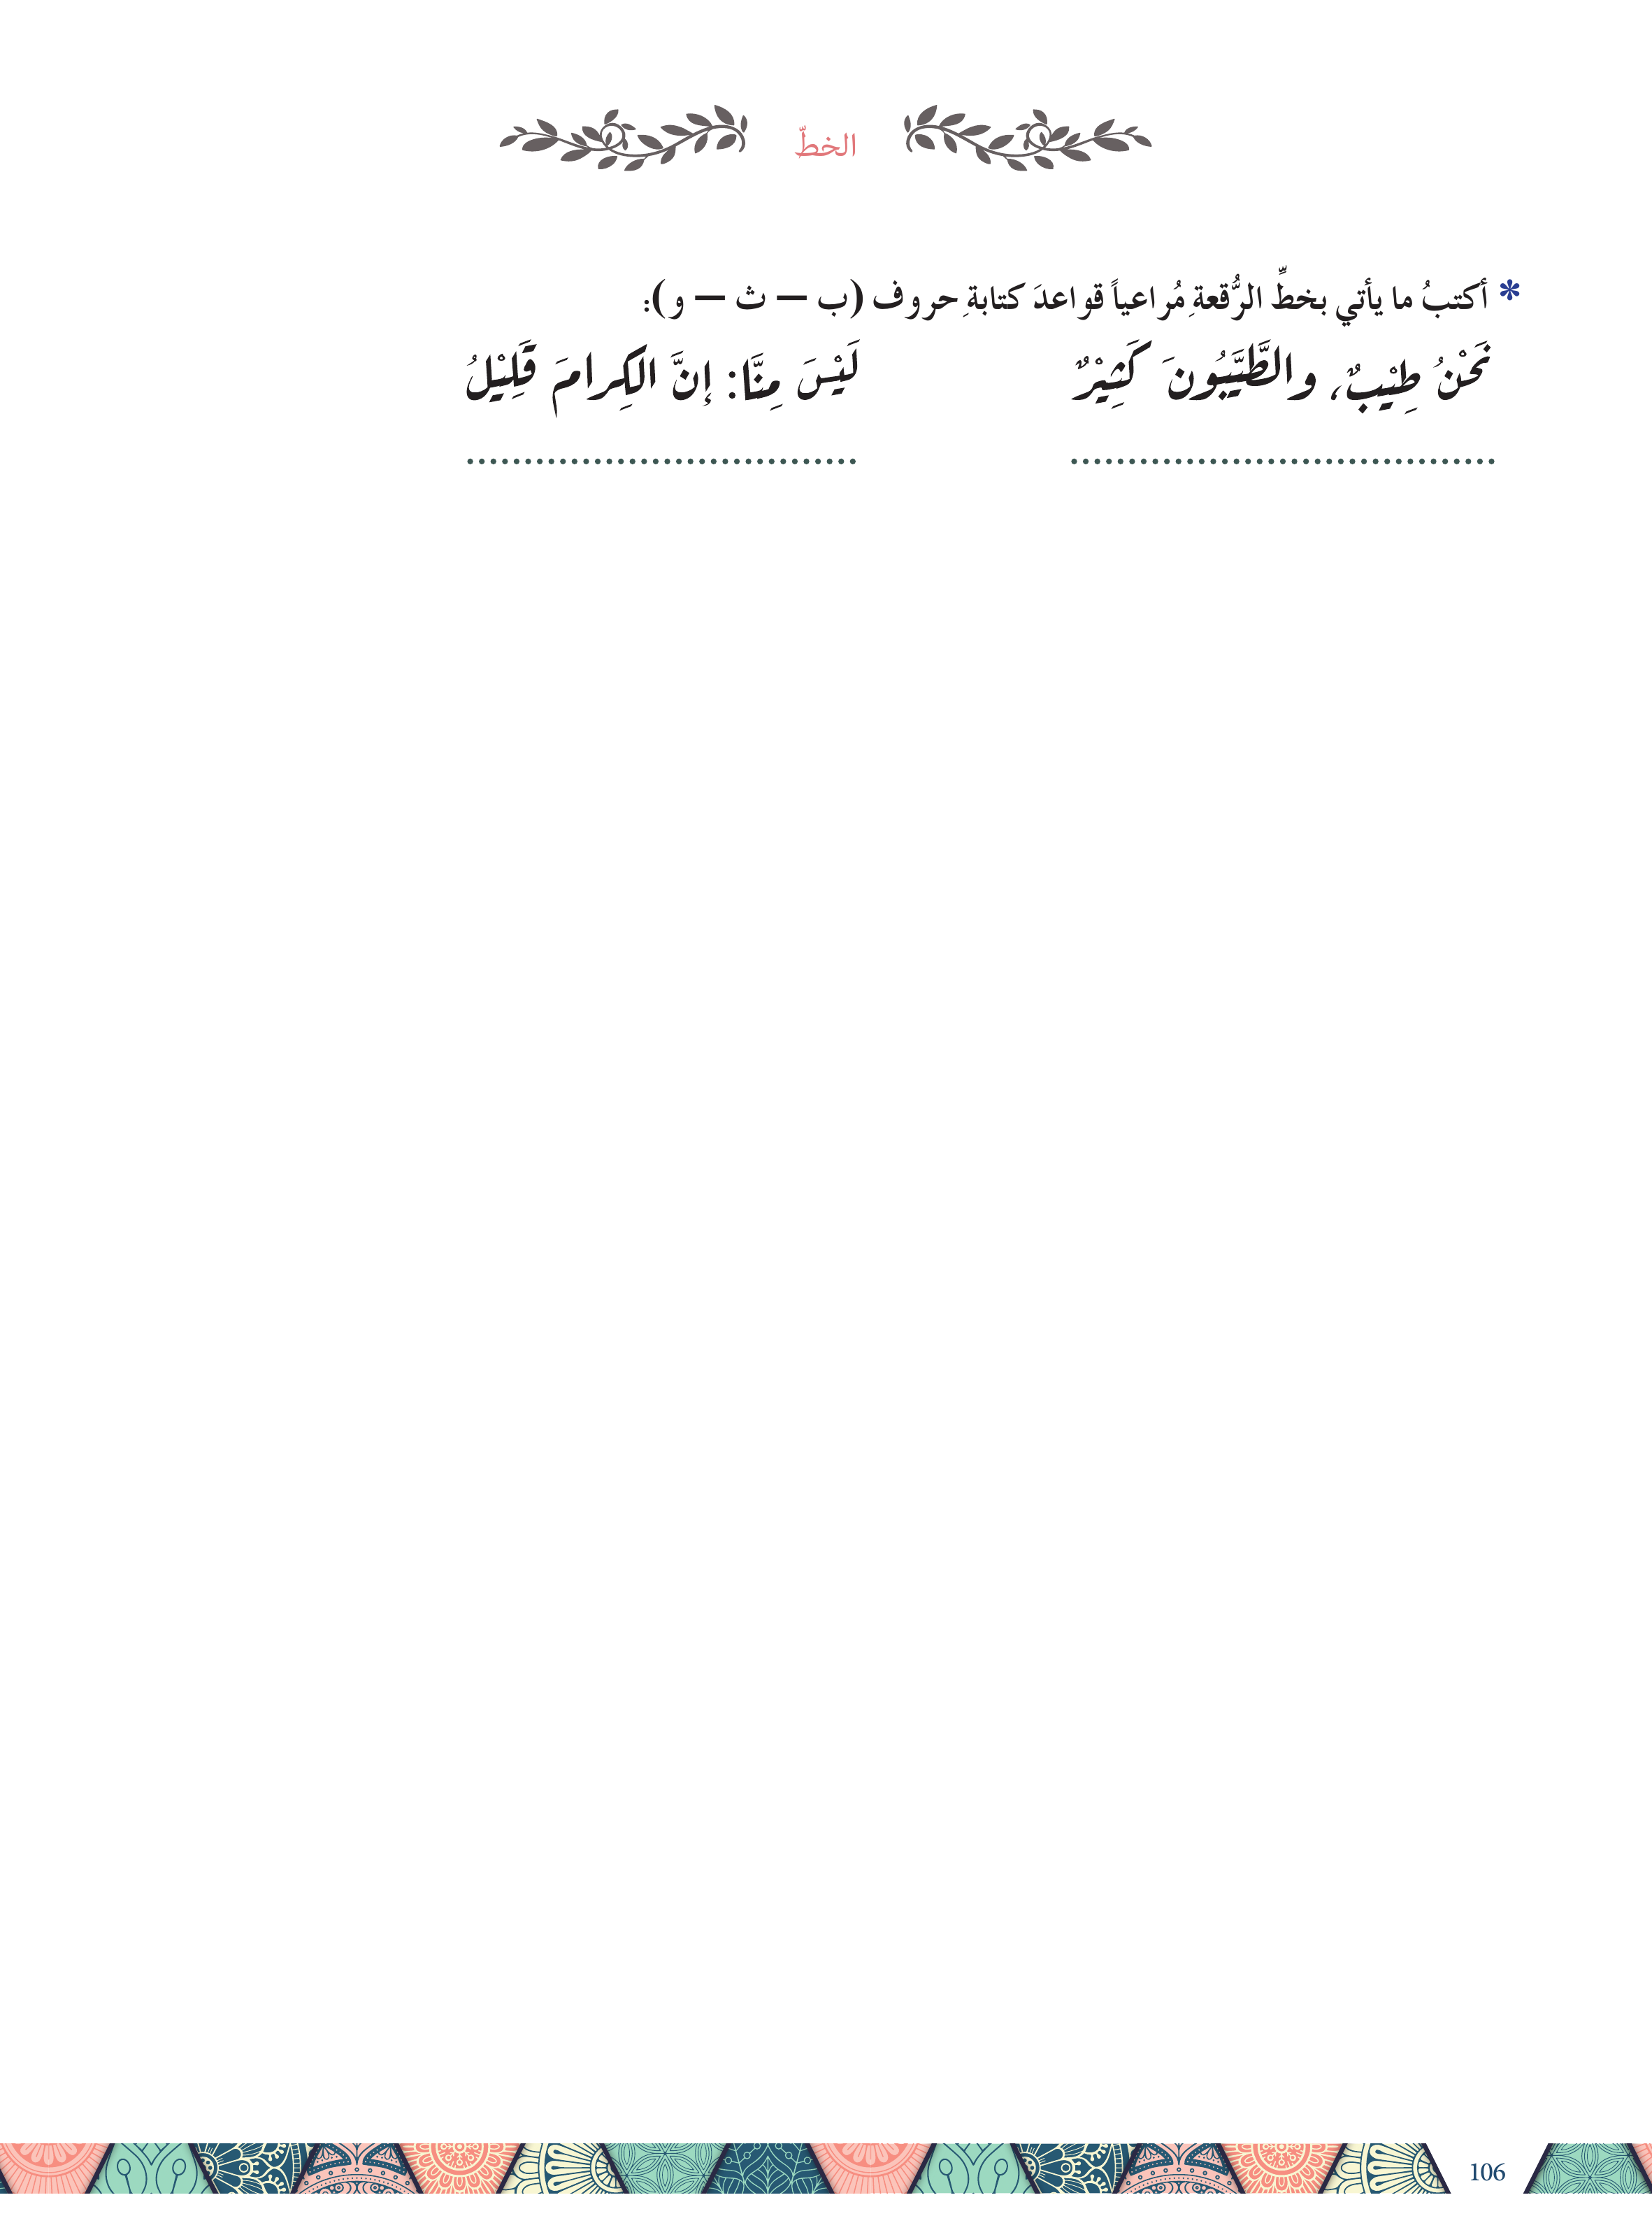 الخطّ
* أكتبُ ما يأتي بخطِّ الرُّقعةِ مُراعياً قواعدَ كتابةِ حروف (ب – ث – و):
نَحْنُ طِيْبٌ، والطَّيَّبُونَ كَثِيْرٌ لَيْسَ مِنَّا: إنَّ الكِرامَ قَلِيْلُ
106